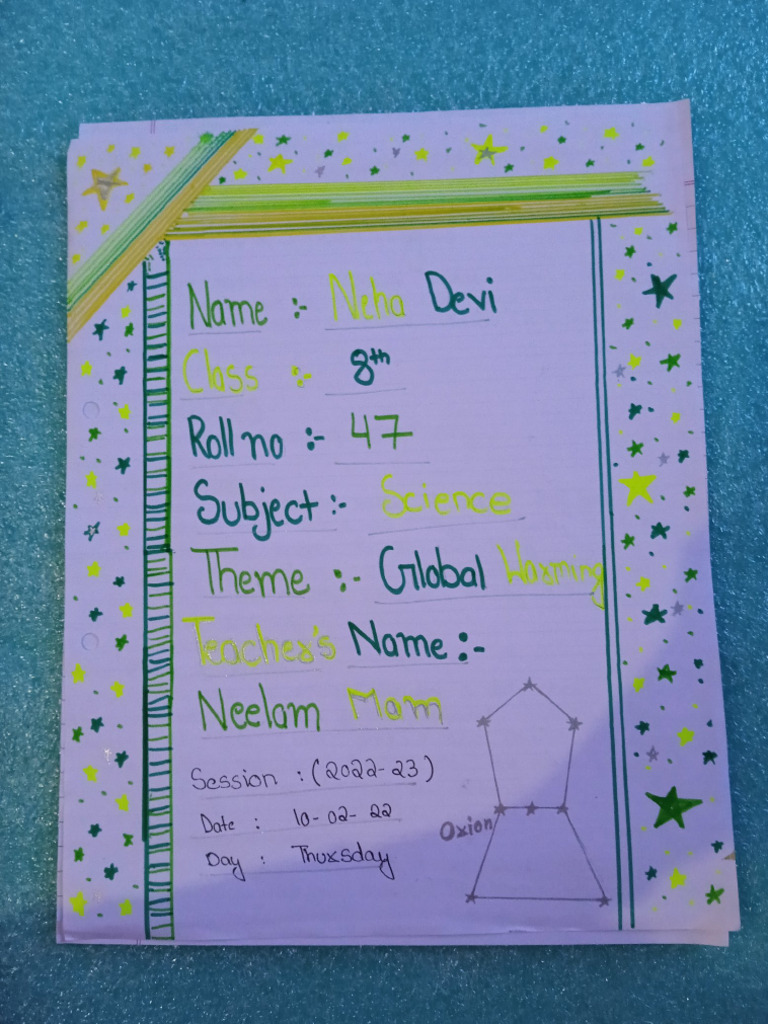 Name :- Neha Devi
Class :- 8th
Roll no :- 47
Subject :- Science
Theme :- Global Warming
Teacher's Name :-
Neelam Mam
Session : (2022-23)
Date : 10-02-22
Day : Thursday
Orion